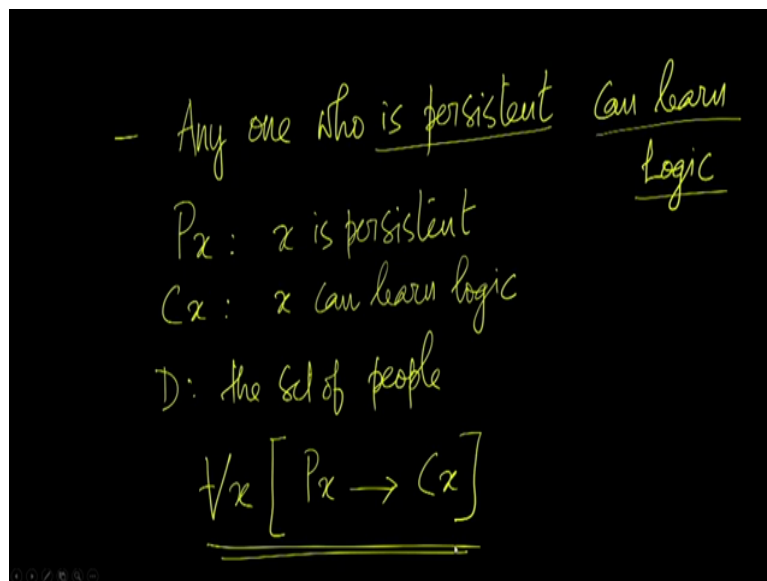 - Any one who is persistent can learn
logic
Px : x is persistent
Cx : x can learn logic
D : the set of people
∀x [ Px → Cx ]